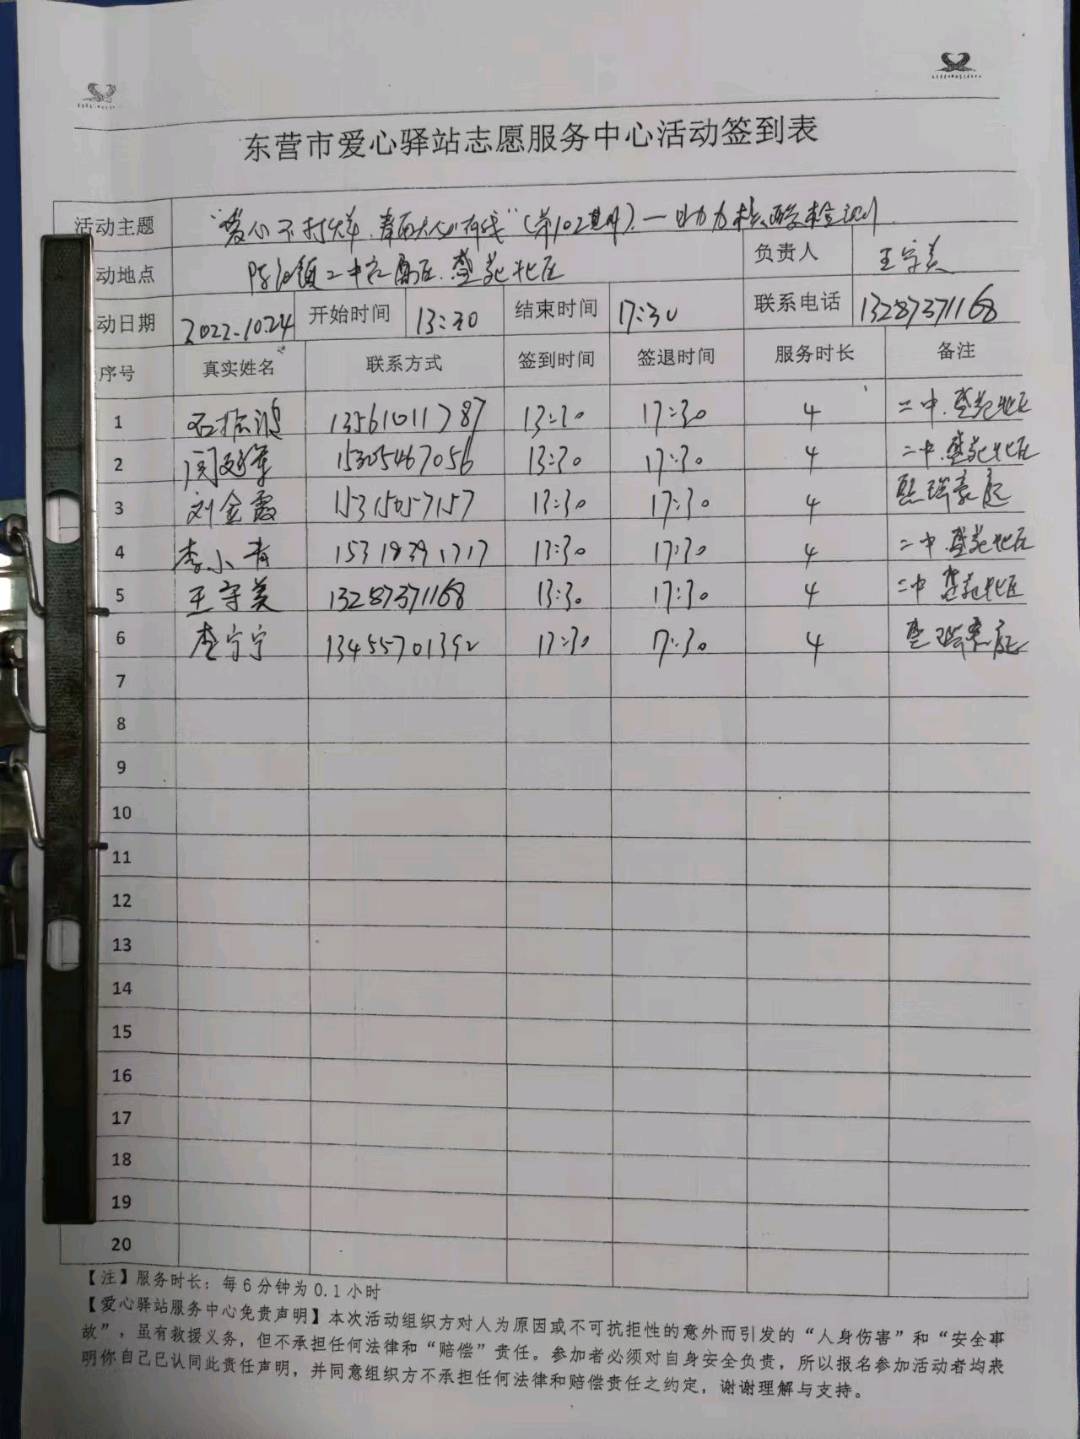 东营市爱心驿站志愿服务中心活动签到表
活动主题 "爱心不打烊 (第102期)—助力核酸检测
动地点 二中 盛苑北区 负责人 王守美
动日期 2022-10.24 开始时间 13:30 结束时间 17:30 联系电话 13287371168
序号 真实姓名 联系方式 签到时间 签退时间 服务时长 备注
1 石振鸿 13561011787 13:30 17:30 4 二中.盛苑北区
2 15305467056 13:30 17:30 4 二中.盛苑北区
3 刘金霞 15315057157 13:30 17:30 4 熙瑞豪庭
4 李小青 15318391717 13:30 17:30 4 二中.盛苑北区
5 王守美 13287371168 13:30 17:30 4 二中 盛苑北区
6 李宁宁 13455701392 13:30 17:30 4 瑞豪庭
7
8
9
10
11
12
13
14
15
16
17
18
19
20
【注】服务时长：每6分钟为0.1小时
【爱心驿站服务中心免责声明】本次活动组织方对人为原因或不可抗拒性的意外而引发的“人身伤害”和“安全事
故”，虽有救援义务，但不承担任何法律和“赔偿”责任。参加者必须对自身安全负责，所以报名参加活动者均表
明你自己已认同此责任声明，并同意组织方不承担任何法律和赔偿责任之约定，谢谢理解与支持。